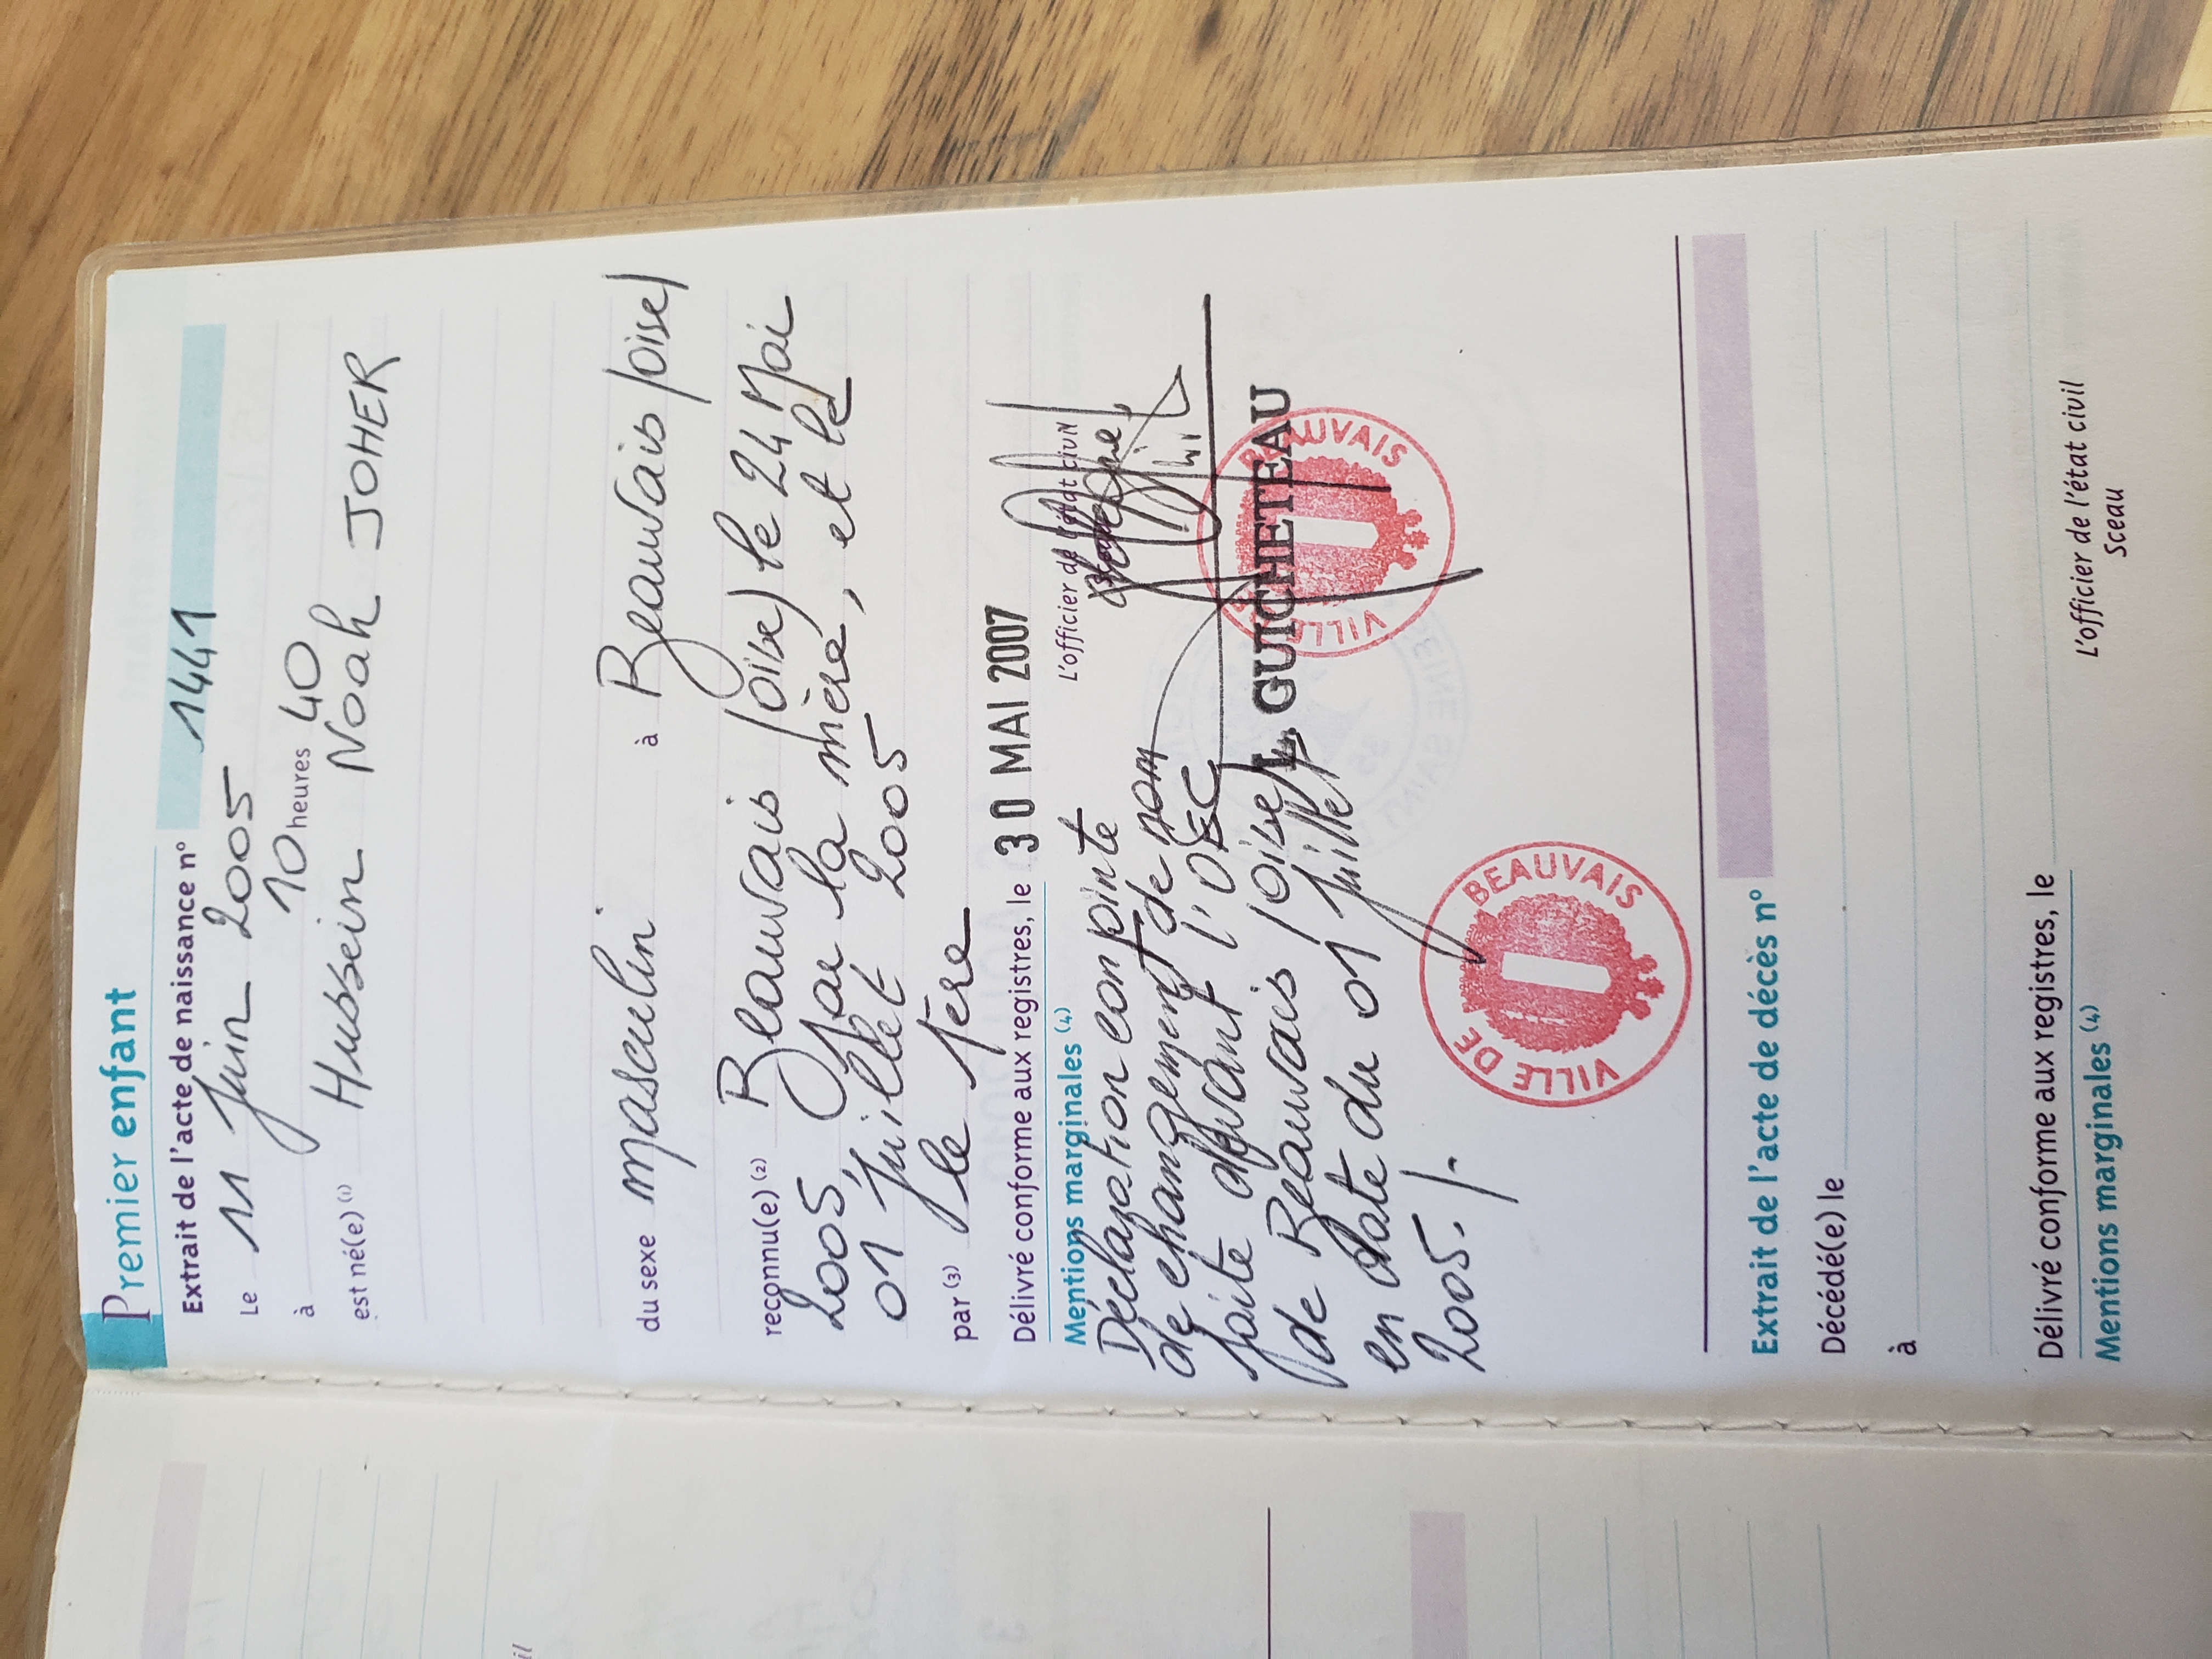 Premier enfant
Extrait de l'acte de naissance n° 1441
Le 11 Juin 2005
à 10 heures 40
est né(e) (1) Hussein Noah JOHER
du sexe masculin à Beauvais (oise)
reconnu(e) (2) Beauvais (oise) le 24 Mai
2005, par la mère, et le
01 Juillet 2005
par (3) le père
Délivré conforme aux registres, le 30 MAI 2007
Mentions marginales (4)
L'officier de l'état civil
Déclaration conjointe
de changement de nom
faite devant l'OEC
de Beauvais (oise)
en date du 01 Juillet
2005. /.
L. GUICHETEAU
VILLE DE BEAUVAIS
VILLE DE BEAUVAIS
Extrait de l'acte de décès n°
Décédé(e) le
à
Délivré conforme aux registres, le
Mentions marginales (4)
L'officier de l'état civil
Sceau
il